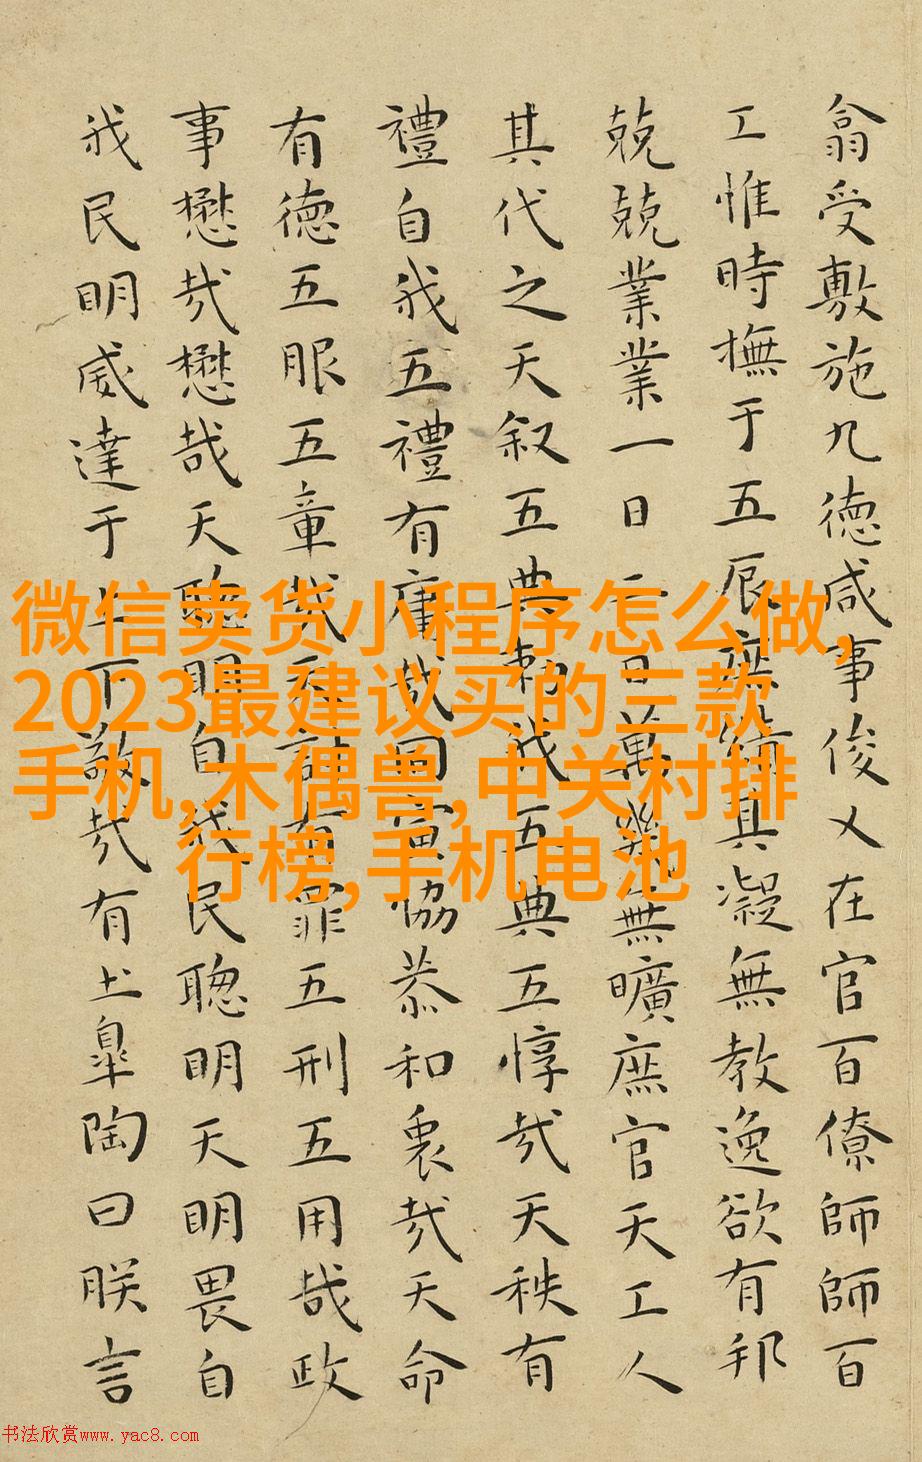 翕受敷施九德咸事俊乂在官百僚師師百
工惟時撫于五辰庶績其凝無教逸欲有邦
兢兢業業一日二日萬幾無曠庶官天工人
其代之天叙五典勑我五典五惇哉天秩有
禮自我五禮有庸哉同寅協恭和衷哉天命
有德五服五章哉天討有罪五刑五用哉政
事懋哉懋哉天聰明自我民聰明天明畏自
我民明威達于上下敬哉有土皐陶曰朕言
微信卖货小程序怎么做,
2023最建议买的三款
手机,木偶兽,中关村排
行榜,手机电池
书法欣赏www.yac8.com